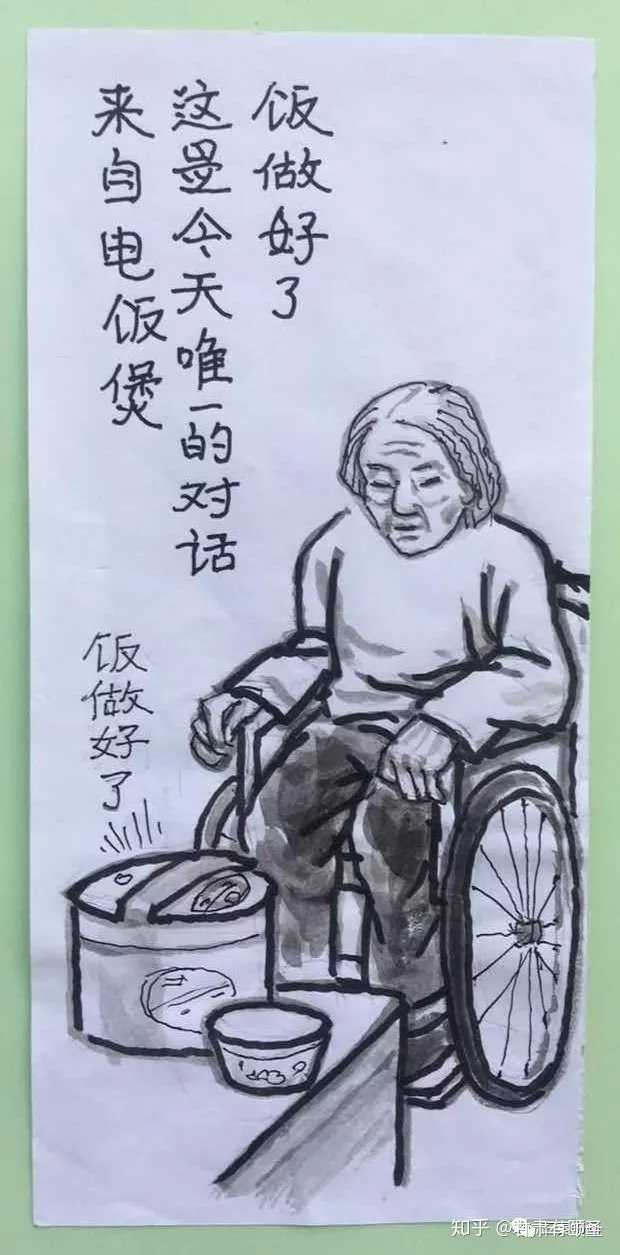 饭做好了
这是今天唯一的对话
来自电饭煲
饭做好了
知乎